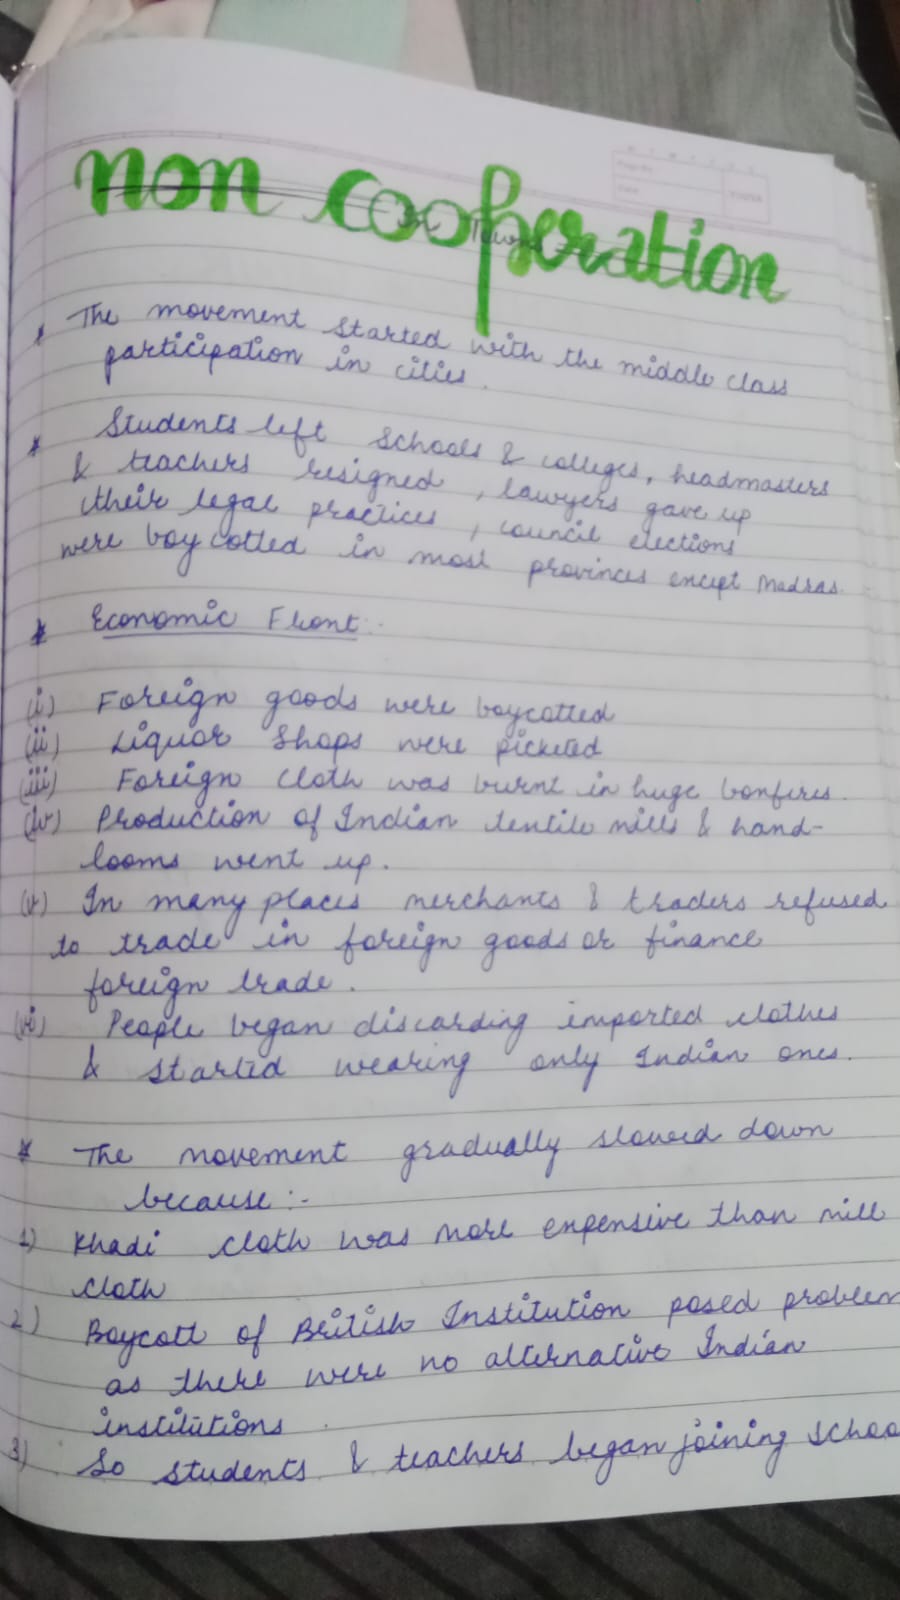 non cooperation
in Towns
* The movement started with the middle class
participation in cities.
* Students left schools & colleges, headmasters
& teachers resigned, lawyers gave up
their legal practices, council elections
were boycotted in most provinces except Madras.
* Economic Front:-
(i) Foreign goods were boycotted
(ii) Liquor Shops were picketed
(iii) Foreign cloth was burnt in huge bonfires.
(iv) Production of Indian textile mills & hand-
looms went up.
(v) In many places merchants & traders refused
to trade in foreign goods or finance
foreign trade.
(vi) People began discarding imported clothes
& started wearing only Indian ones.
* The movement gradually slowed down
because:-
1) Khadi cloth was more expensive than mill
cloth
2) Boycott of British Institution posed problem
as there were no alternative Indian
institutions.
3) So students & teachers began joining schoo